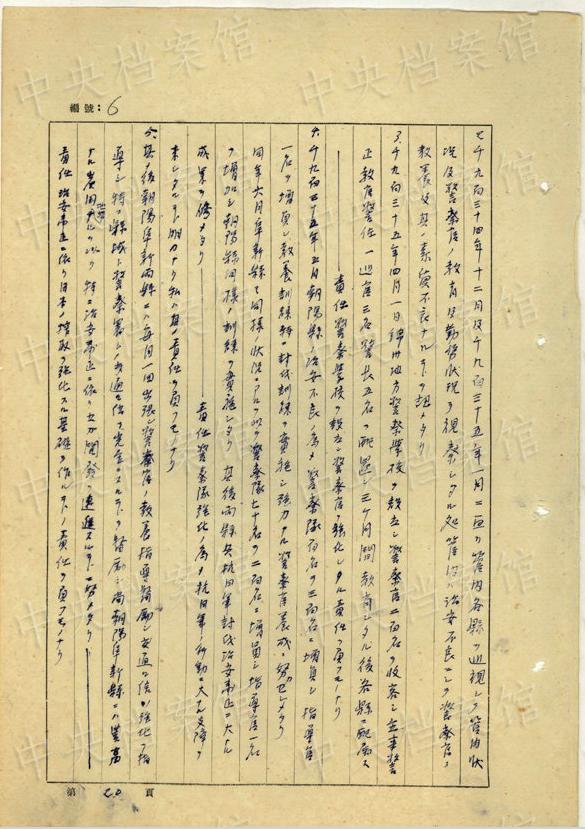 編號：6
七、千九百三十四年十二月及千九百三十五年一月ニ亘リ管内各縣ヲ巡視シテ管内狀
況及警察官ノ教育及勤務狀況ヲ視察シタル処管内ハ治安不良ニシテ警察官ノ
教養及其ノ素質不良ナルコトヲ認メタリ
千九百三十五年四月一日錦州地方警察學校ヲ設立シ警察官二百名ヲ收容シ主事警
正教官警佐一巡官三名警長五名ヲ配置シ三ケ月間教育シタル後各縣ニ配屬ス
責任警察學校ヲ設立シ警察官ヲ強化シタル責任ヲ負フモノナリ
千九百三十五年五月朝陽縣ノ治安不良ノ為メ警察隊百名ヲ三百名ニ增員シ指導官
一名ヲ增員シ教養訓練特ニ討伐訓練ヲ實施シ強力ナル警察官養成ニ努力シタリ
同年六月阜新縣モ同樣狀況ニアルヲ以テ警察隊七十名ヲ二百名ニ增員シ指導官一名
ヲ增加シ朝陽縣同樣ノ訓練ヲ實施シタリ 其後兩縣共抗日軍討伐治安肅正ニ大ナル
成果ヲ修メタリ
責任警察隊強化ノ為メ抗日軍ノ行動ニ大ナル支障ヲ
来シタルコト明カナリ私ハ其ノ責任ヲ負フモノナリ
其ノ後朝陽阜新兩縣ニハ每月一回出張シ警察官ノ教養指導督勵シ交通通信ノ強化ヲ指
導シ特ニ縣城ト警察署トノ交通通信ヲ完全ニスルコトヲ督勵シ尚朝陽阜新縣ニハ豊富
ナル炭田アルヲ以テ特ニ治安肅正ニ依リ之カ開發ヲ速進スルコトニ努メタリ
責任治安肅正ニ依リ日本ノ搾取ヲ強化スル基礎ヲ作ルコトノ責任ヲ負フモノナリ
第 20 頁
中央档案馆